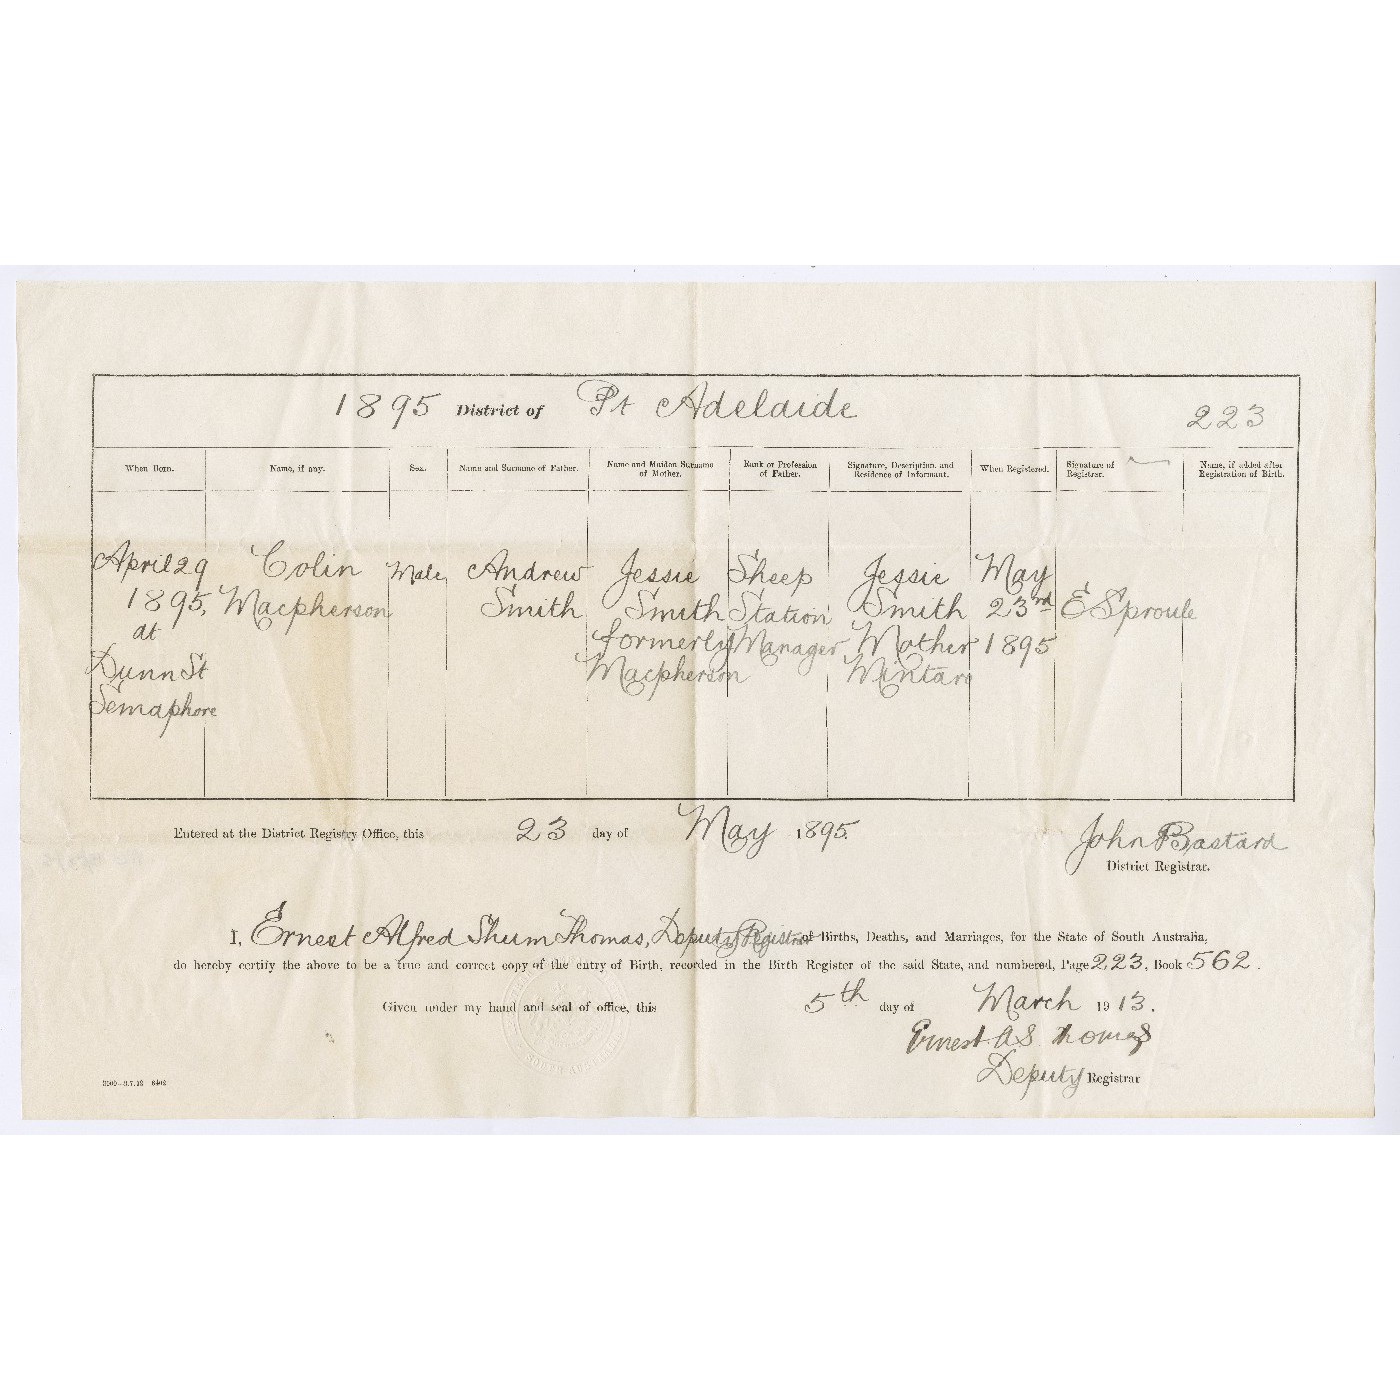 1895 District of Pt Adelaide
223
When Born. Name, if any. Sex. Name and Surname of Father. Name and Maiden Surname of Mother. Rank or Profession of Father. Signature, Description, and Residence of Informant. When Registered. Signature of Registrar. Name, if added after Registration of Birth.
April 29
1895,
at
Dunn St
Semaphore
Colin
Macpherson
Male
Andrew
Smith
Jessie
Smith
formerly
Macpherson
Sheep
Station
Manager
Jessie
Smith
Mother
Mintaro
May
23rd
1895
E Sproule
Entered at the District Registry Office, this 23 day of May 1895.
John Bastard
District Registrar.
I, Ernest Alfred Shum Thomas, Deputy Registrar of Births, Deaths, and Marriages, for the State of South Australia,
do hereby certify the above to be a true and correct copy of the entry of Birth, recorded in the Birth Register of the said State, and numbered, Page 223, Book 562.
Given under my hand and seal of office, this 5th day of March 1913.
Ernest A S Thomas
Deputy Registrar
3000—3.7.12 6402
SOUTH AUSTRALIA